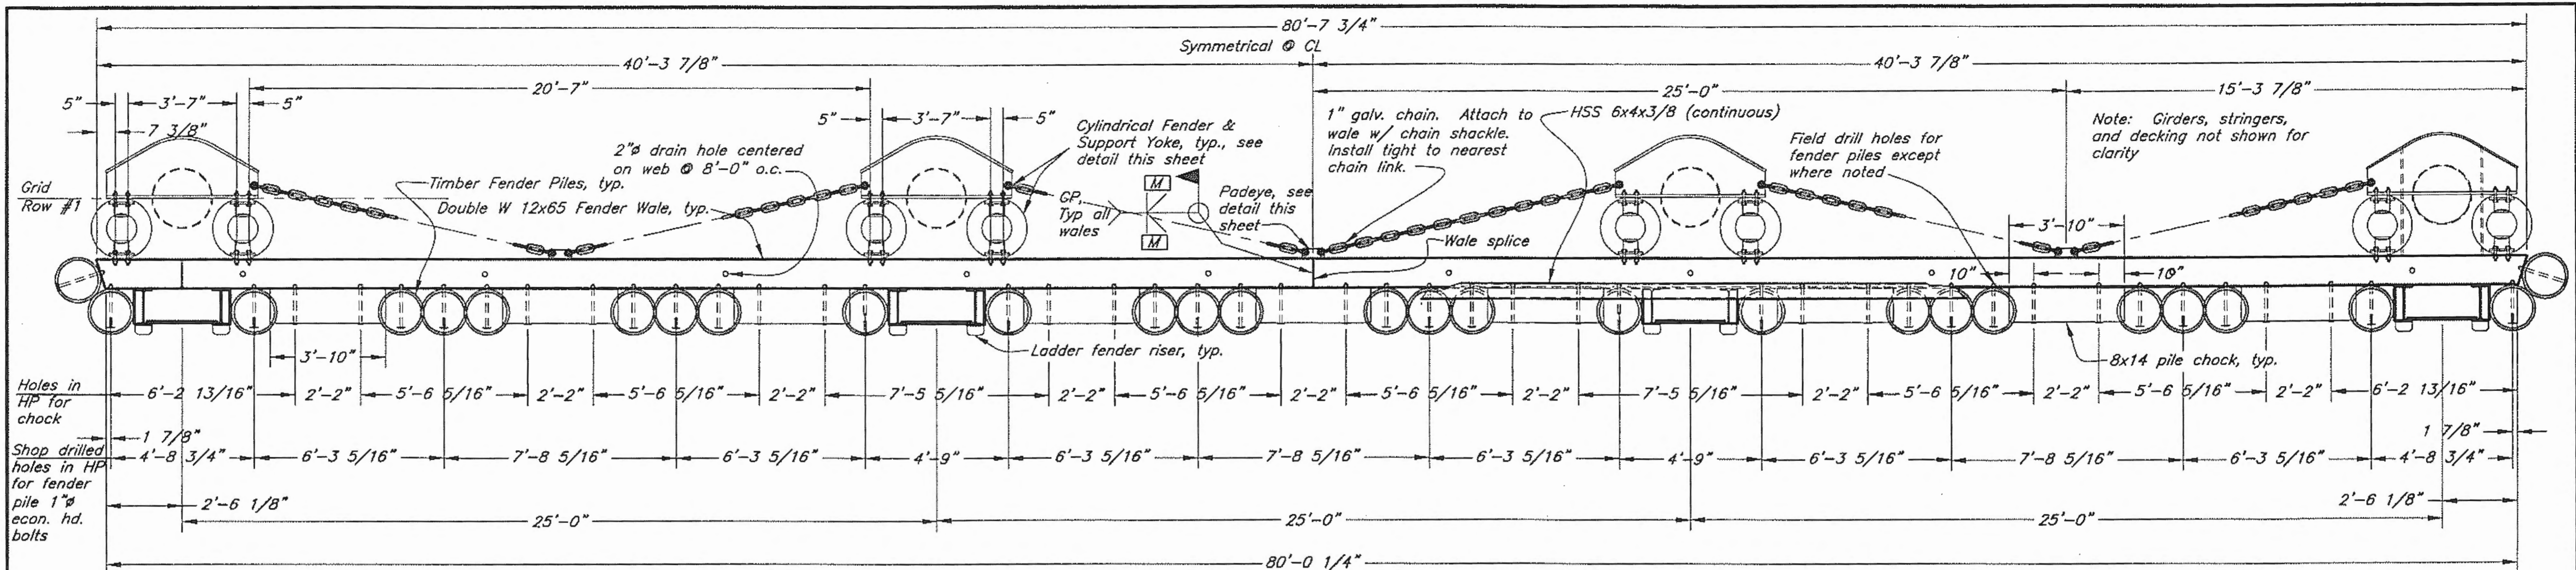 80'-7 3/4"
Symmetrical @ CL
40'-3 7/8"
40'-3 7/8"
20'-7"
25'-0"
15'-3 7/8"
5"
3'-7"
5"
7 3/8"
5"
3'-7"
5"
Cylindrical Fender &
Support Yoke, typ., see
detail this sheet
1" galv. chain. Attach to
wale w/ chain shackle.
Install tight to nearest
chain link.
HSS 6x4x3/8 (continuous)
Field drill holes for
fender piles except
where noted
Note: Girders, stringers,
and decking not shown for
clarity
2"ø drain hole centered
on web @ 8'-0" o.c.
Timber Fender Piles, typ.
Double W 12x65 Fender Wale, typ.
Grid
Row #1
GP,
Typ all
wales
M
M
Padeye, see
detail this
sheet
Wale splice
3'-10"
10"
10"
3'-10"
Ladder fender riser, typ.
8x14 pile chock, typ.
Holes in
HP for
chock
6'-2 13/16"
2'-2"
5'-6 5/16"
2'-2"
5'-6 5/16"
2'-2"
7'-5 5/16"
2'-2"
5'-6 5/16"
2'-2"
5'-6 5/16"
2'-2"
7'-5 5/16"
2'-2"
5'-6 5/16"
2'-2"
5'-6 5/16"
2'-2"
6'-2 13/16"
1 7/8"
1 7/8"
Shop drilled
holes in HP
for fender
pile 1"ø
econ. hd.
bolts
4'-8 3/4"
6'-3 5/16"
7'-8 5/16"
6'-3 5/16"
4'-9"
6'-3 5/16"
7'-8 5/16"
6'-3 5/16"
4'-9"
6'-3 5/16"
7'-8 5/16"
6'-3 5/16"
4'-8 3/4"
2'-6 1/8"
2'-6 1/8"
25'-0"
25'-0"
25'-0"
80'-0 1/4"